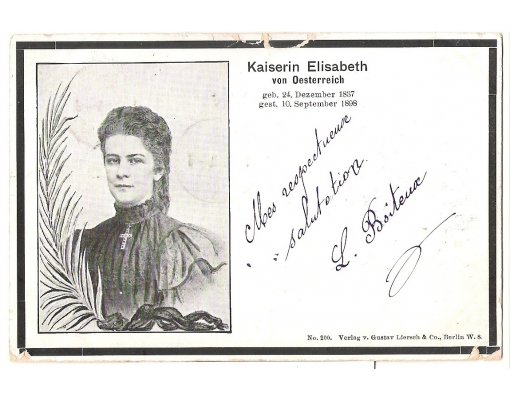 Kaiserin Elisabeth
von Oesterreich
geb. 24. Dezember 1837
gest. 10. September 1898
Mes respectueuse
salutation
L. Boiteux
No. 200. Verlag v. Gustav Liersch & Co., Berlin W. 8.